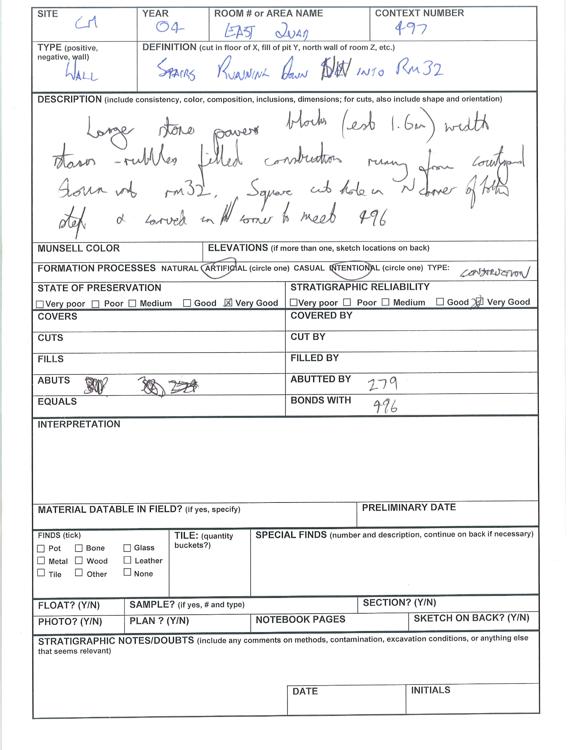 SITE CM YEAR 04 ROOM # or AREA NAME EAST QUAD CONTEXT NUMBER 497
TYPE (positive, negative, wall) WALL DEFINITION (cut in floor of X, fill of pit Y, north wall of room Z, etc.)
STAIRS RUNNING DOWN INTO RM32
DESCRIPTION (include consistency, color, composition, inclusions, dimensions; for cuts, also include shape and orientation)
Large stone pavers blocks (est 1.6m) width
- rubbles filled construction runing from courtyard
down into rm32. Square cut hole in N corner of
step & carved in N corner to meet 496
MUNSELL COLOR ELEVATIONS (if more than one, sketch locations on back)
FORMATION PROCESSES NATURAL ARTIFICIAL (circle one) CASUAL INTENTIONAL (circle one) TYPE: CONSTRUCTION
STATE OF PRESERVATION STRATIGRAPHIC RELIABILITY
Very poor Poor Medium Good Very Good Very poor Poor Medium Good Very Good
COVERS COVERED BY
CUTS CUT BY
FILLS FILLED BY
ABUTS ABUTTED BY 279
EQUALS BONDS WITH 496
INTERPRETATION
MATERIAL DATABLE IN FIELD? (if yes, specify) PRELIMINARY DATE
FINDS (tick) TILE: (quantity buckets?) SPECIAL FINDS (number and description, continue on back if necessary)
Pot Bone Glass
Metal Wood Leather
Tile Other None
FLOAT? (Y/N) SAMPLE? (if yes, # and type) SECTION? (Y/N)
PHOTO? (Y/N) PLAN ? (Y/N) NOTEBOOK PAGES SKETCH ON BACK? (Y/N)
STRATIGRAPHIC NOTES/DOUBTS (include any comments on methods, contamination, excavation conditions, or anything else
that seems relevant)
DATE INITIALS